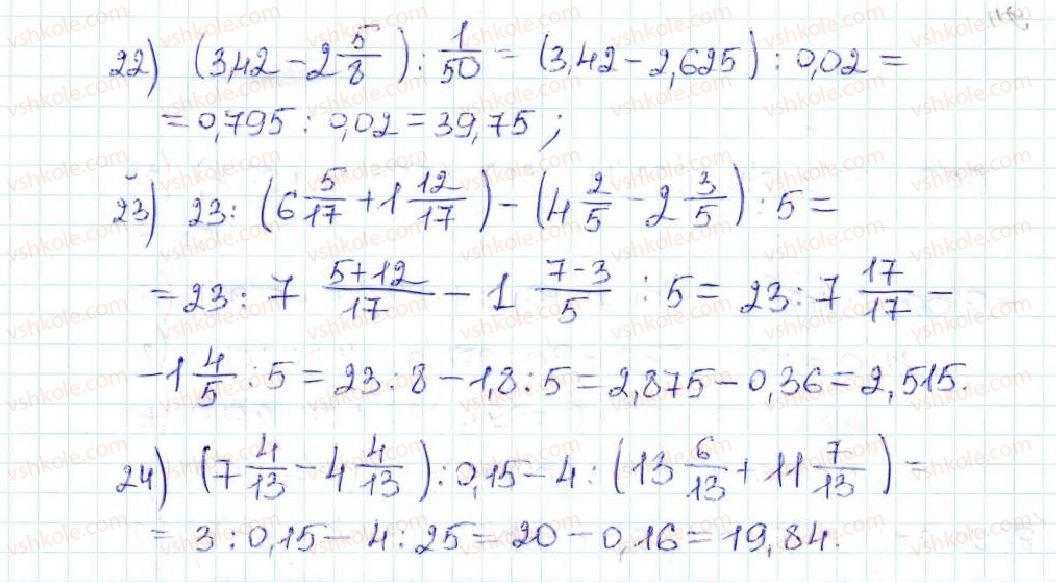 22) (3,42 - 2 5/8) : 1/50 = (3,42 - 2,625) : 0,02 =
= 0,795 : 0,02 = 39,75 ;
23) 23 : (6 5/17 + 1 12/17) - (4 2/5 - 2 3/5) : 5 =
= 23 : 7 (5+12)/17 - 1 (7-3)/5 : 5 = 23 : 7 17/17 -
- 1 4/5 : 5 = 23 : 8 - 1,8 : 5 = 2,875 - 0,36 = 2,515.
24) (7 4/13 - 4 4/13) : 0,15 - 4 : (13 6/13 + 11 7/13) =
= 3 : 0,15 - 4 : 25 = 20 - 0,16 = 19,84.
vshkole.com